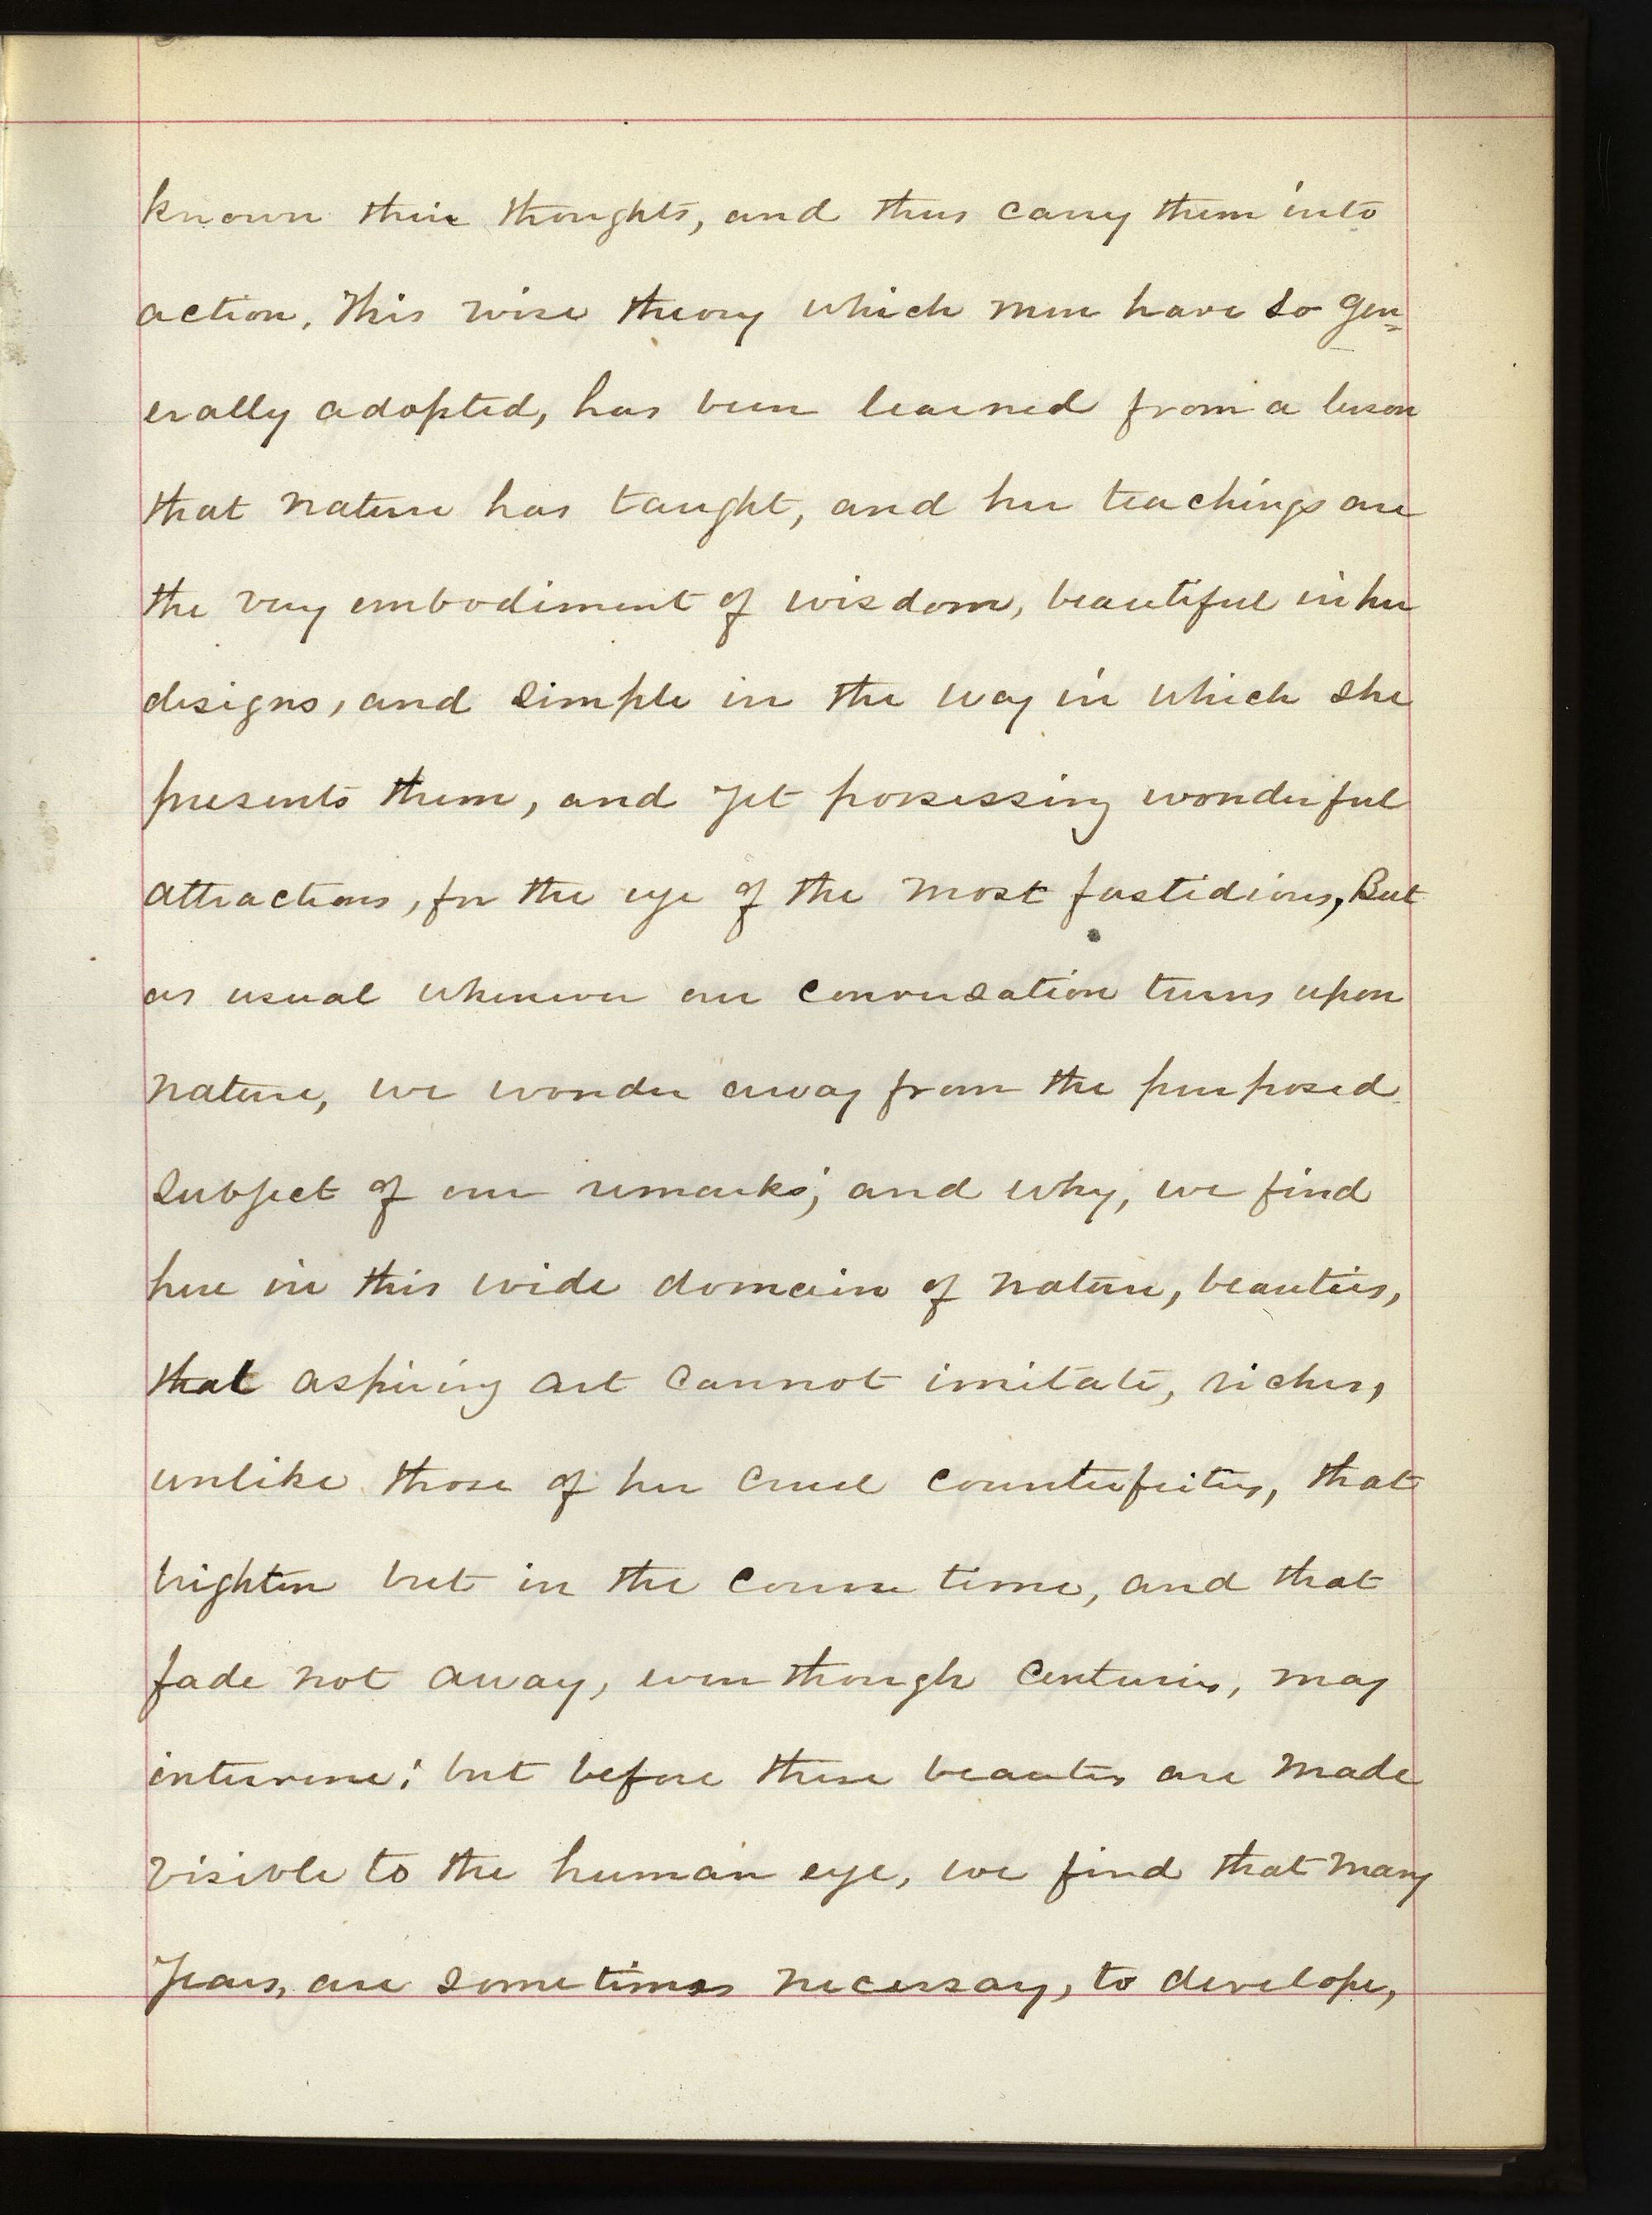 known their thoughts, and thus carry them into
action. This wise theory which men have so gen=
erally adopted, has been learned from a lesson
that nature has taught, and her teachings are
the very embodiment of wisdom, beautiful in her
designs, and simple in the way in which she
presents them, and yet possessing wonderful
attractions, for the eye of the most fastidious, But
as usual whenever our conversation turns upon
nature, we wonder away from the purposed
subject of our remarks; and why, we find
here in this wide domain of nature, beauties,
that aspiring art cannot imitate, riches,
unlike those of her cruel counterfeiters, that
brighten but in the course time, and that
fade not away, even though centuries, may
intervene; but before these beauties are made
visible to the human eye, we find that many
years, are sometimes necessary, to develope,